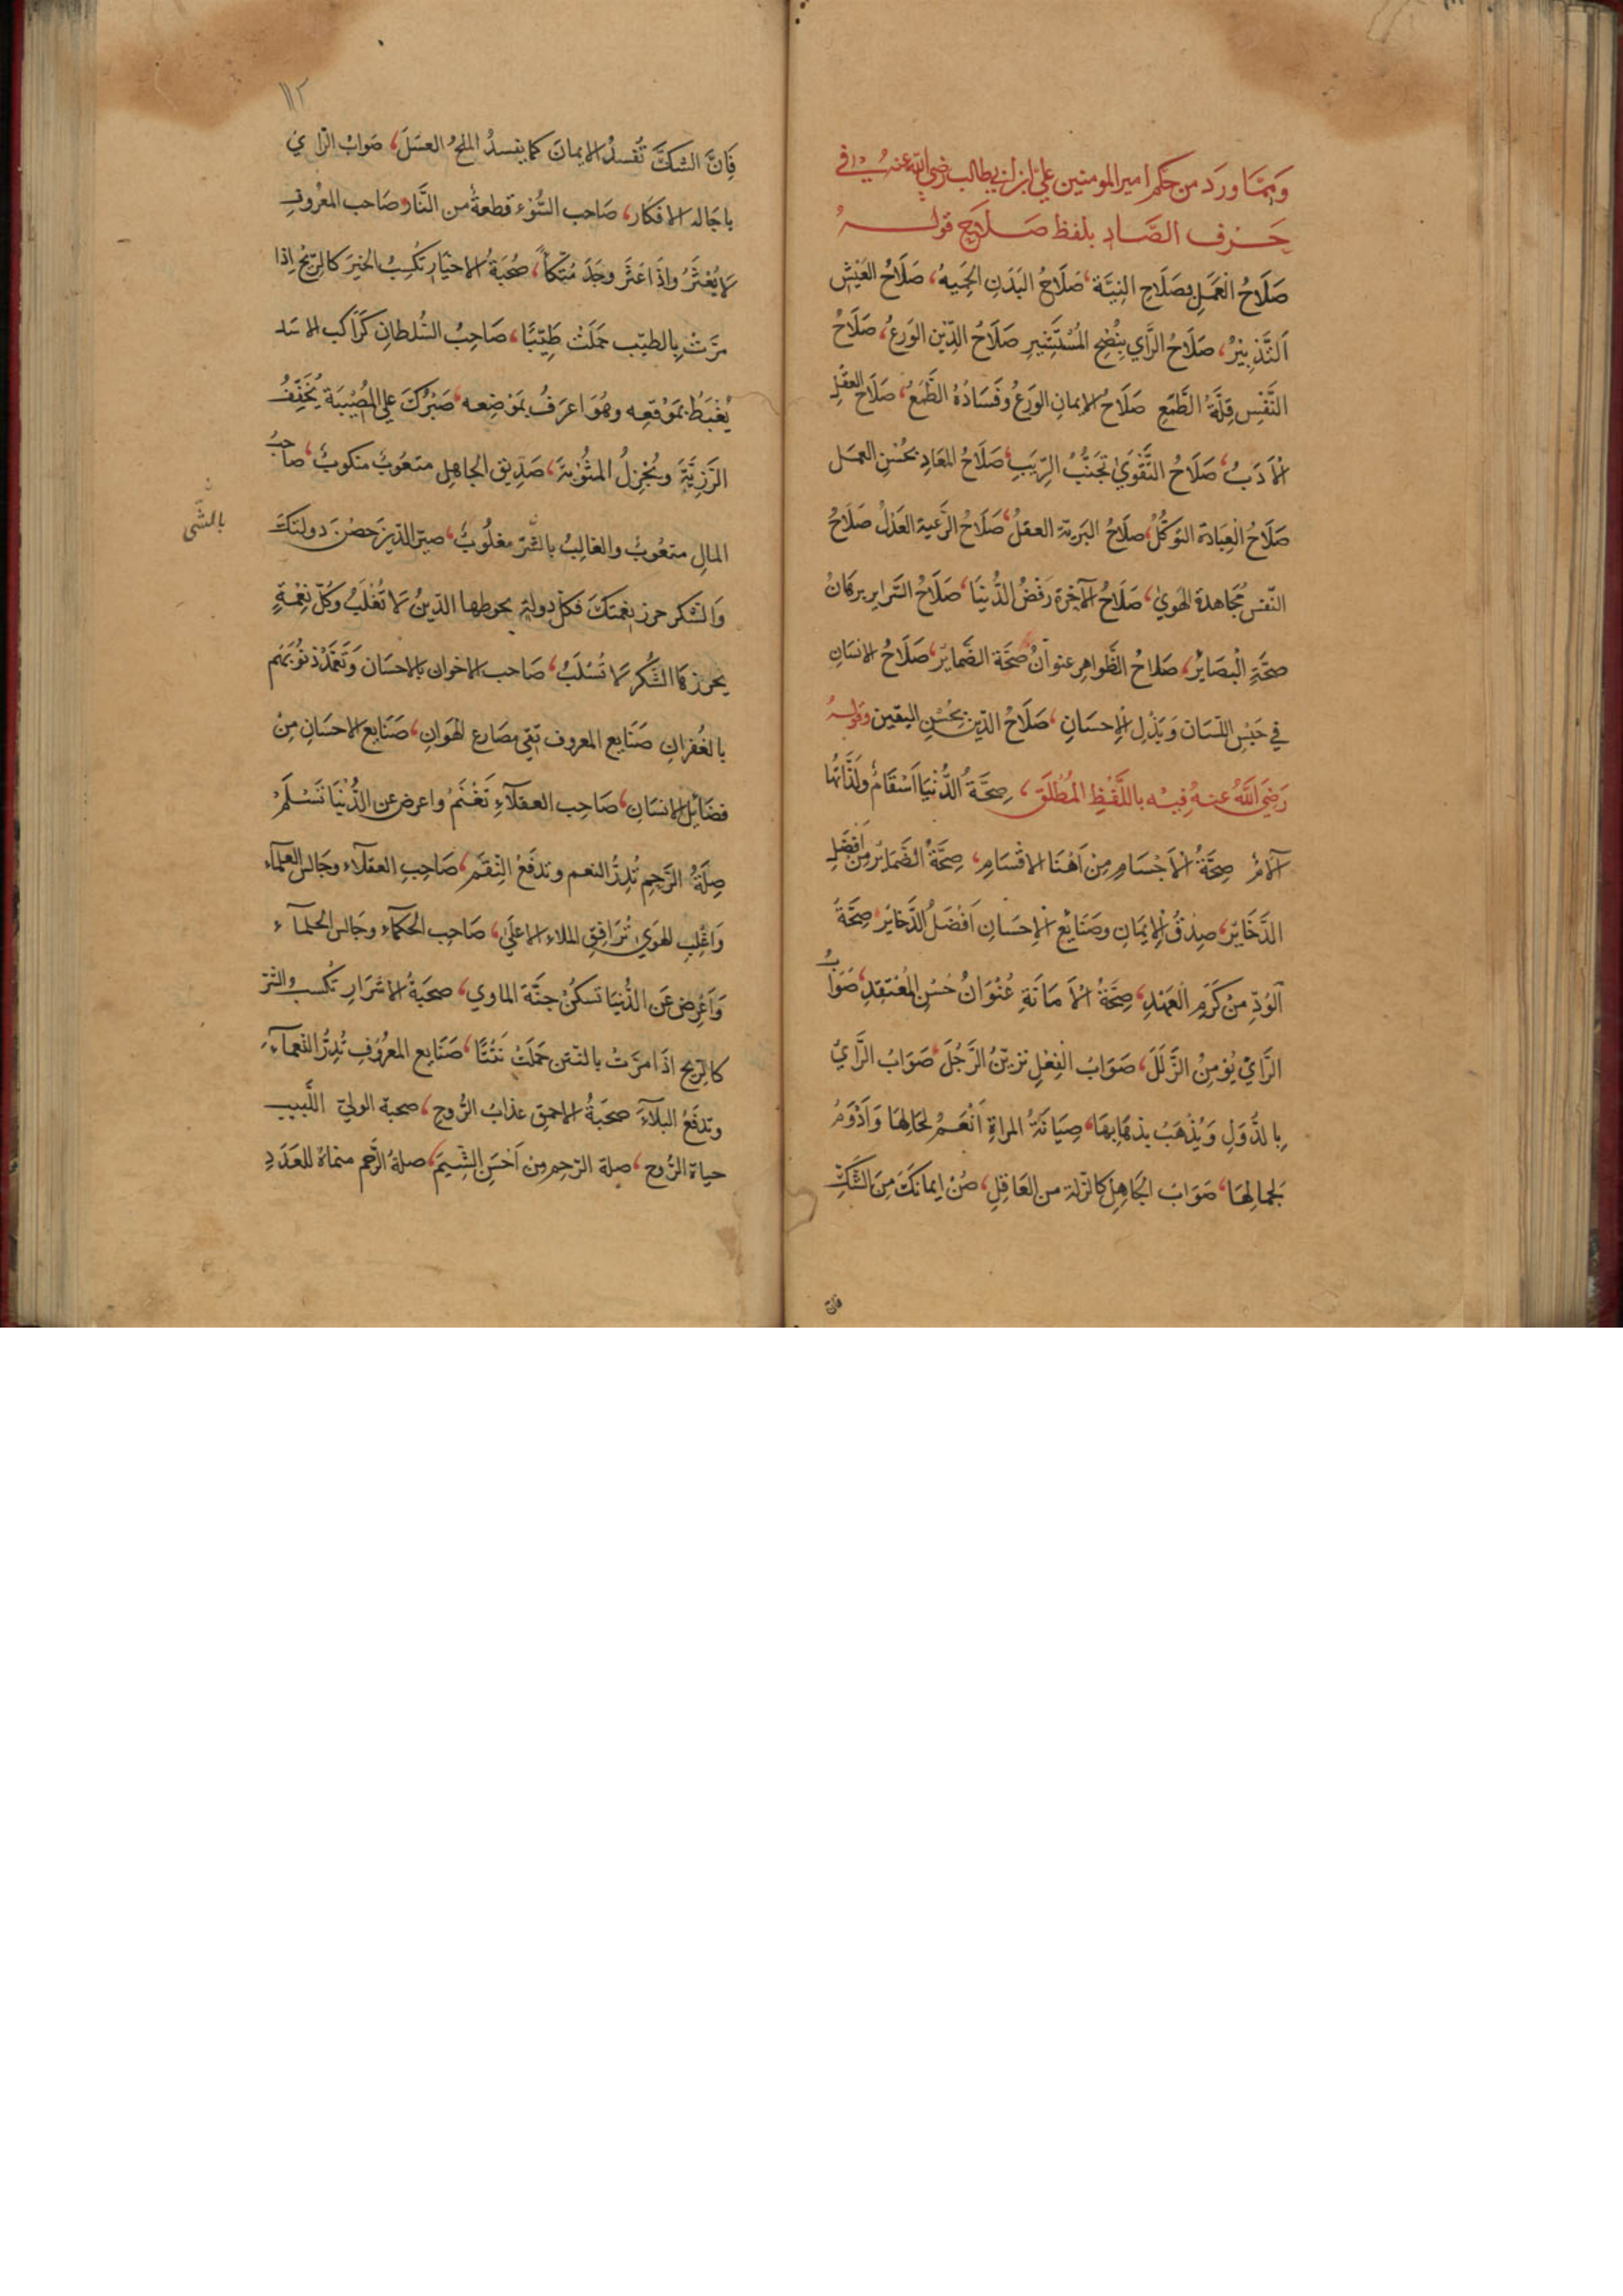 وَمِمَّا وَرَدَ من حِكَم امير المومنين علي ابن ابي طالب رضي الله عنه في
حَرف الصَّادِ بلفظ صَلَاحِ قولهُ
صَلَاحُ الْعَمَلِ بِصَلَاحِ النِيَّة، صَلَاحُ البَدَنِ الحَمِيه، صَلَاحُ العَيْشِ
اَلتَّدْبِيْرُ، صَلَاحُ الرَّاي بِنُصْحِ المُسْتَشِيرِ صَلَاحُ الدِّيْنِ الوَرعُ، صَلَاحُ
النَّفْسِ قِلَّةُ الطَّمَعِ صَلَاحُ الإيمانِ الوَرَعُ وفَسَادُهُ الطَّمَعُ، صَلَاحُ العَقْلِ
الْأَدَبُ، صَلَاحُ التَّقْوَيٰ تَجَنُّبُ الرِّيَبِ، صَلَاحُ المَعَادِ بحُسْنِ العمَل
صَلَاحُ الْعِبَادَة التوكّلُ، صلَاحُ البَريّة العقلُ، صَلَاحُ الرَّعية العَدْلُ صَلَاحُ
النّفسِ مُجَاهدة الهَويٰ، صَلَاحُ الآخِرَة رَفضُ الدُّنيَا، صَلَاحُ السَّرايرِ برهَانُ
صحَّةِ الْبصَايْرِ، صَلاحُ الظَّواهِرِ عنوانُ صحّة الضَمايرْ، صَلَاحُ الانسَانِ
في حَبْسِ اللّسَان وَبَذْلِ الْإِحسَانِ، صَلَاحُ الدّيْنِ بحُسْنِ اليقين وقولهُ
رَضِيَ اللَّهُ عنهُ فِيْهِ بِاللَّفْظِ المُطْلَقِ، صِحَّةُ الدُّنيَا اَسْقَامٌ ولَذَّاتُهَا
آلامٌ صِحَّةُ الْاَجْسَامِ مِنْ اَهْنَا الاقسَامِ، صِحَّةُ الضَمَايْرِ مِنْ اَفْضَلِ
الذَّخَايْرِ، صِدْقُ الْإيمَانِ وصَنَايْعُ الْإحسَانِ اَفْضَلُ الذَّخايرْ، صِحَّةُ
اَلوُدِّ مِنْ كَرَمِ الْعَهْدِ، صِحَّةُ الْاَمَانَةِ عُنْوَانُ حُسْنِ المُعْتقدِ، صَوَابُ
الرَّايْ يُؤمِنُ الزَّلَلَ، صَوَابُ الْفِعْلِ يَزيّنُ الرَّجُلَ، صَوَابُ الرَّايْ
بِالدُّوَلِ وَيُذْهَبُ بذهَابِهَا، صِيَانَةُ المراةِ اَنْعَمُ لحَالِهَا وَاَدْوَمُ
لجمالِهَا، صَوَابُ الجَاهِلِ كالزّلة من العَاقِلِ، صُنْ ايمانَكَ مِنَ الشَّكِّ
فان
١١٢
فَاِنَّ الشكَّ تُفسدُ الايمانَ كما يفسدُ الملحُ العسَلَ، صَوابُ الرّاي
باجَالهِ الافكار، صَاحب السُّوْء قطعةٌ من النَّار وصَاحب المعْرُوف
لا يُعْثَرُ واذَا عَثَر وجَدَ مُتكأً، صُحبَةُ الاخيَار تكْسِبُ الخيرَ كالرّيح اِذا
مرَّتْ بِالطيّب حَمَلَتْ طَيّبًا، صَاحِبُ السُّلطانِ كَرَاكب الاسَد
يُغْبَطُ بمَوْقعِه وهُوَ اعرَفُ بمَوْضِعه، صَبْرُكَ علي المصيْبَة يُخَفِّفُ
الرَّزيَّةَ ويُجْزِلُ المثُوبَةَ، صَدِيْق الجاهِل متعُوبٌ منكوبٌ، صاحبُ
المال متعُوبٌ والغالِبُ بالشّرِّ مغلُوبٌ، صيّر الدّينَ حِصْنَ دولتكَ
بالشّي
وَالشكرَ حِرز نِعمتكَ فكلّ دولةٍ يحوطها الدّينُ لَا تُغْلَبُ وكلّ نعِمْةٍ
يحرزهَا الشُّكْر لَا تُسْلَبُ، صَاحب الاخوان بالاحسَان وَتَغمّدْ ذنوبَهُم
بالغُفرانِ صَنَايع المعروف تقي مصَارع الهَوانِ، صَنَايع الاحسَانِ مِنْ
فضَايْل الانسَان، صَاحِب العقلآءِ تَغْنَمْ واعرض عن الدُّنْيَا تَسْلَمْ
صِلَةُ الرَّحِمِ تُدِرُّ النعم وتدفَعُ النِّقَمَ، صَاحِبِ العقلآء وجَالس العلمآء
وَاغلِب الهوَي تُرَافِقِ الملاءَ الاعلَيٰ، صَاحِب الحكمآء وجَالس الحلمآء
وَاَعْرِض عَن الدُّنيَا تسكنْ جنَّة الماوي، صحبَةُ الاشرَارِ تكسبُ الشرّ
كالرّيح اذَا مرَّتْ بالنّتن حَملَتْ نَتْنًا، صَنَايع المعرُوْفِ تُدِرُّ النعمآءَ
وتدفَعُ البلآءَ صحبَةُ الاحمق عذابُ الرُّوحِ، صحبَة الوليّ اللّبيب
حياة الرُّوح، صلة الرّحِمِ مِنْ اَحْسَنِ الشِّيَمَ، صلةُ الرَّحم منماةٌ للعَدَدِ